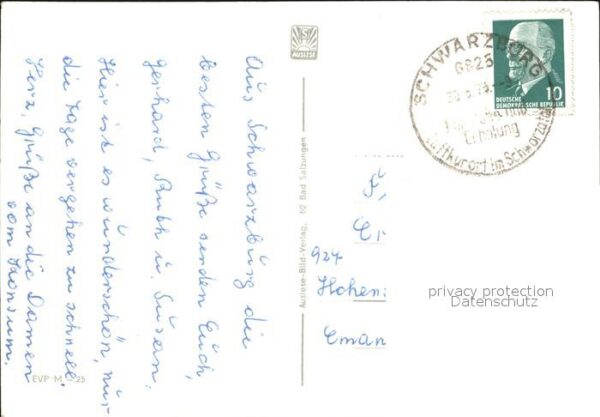 Aus Schwarzburg die
besten Grüße senden Euch,
Gerhard, Ruth u. Susan.
Hier ist es wunderschön, nur
die Tage vergehen zu schnell.
Grüße an die Damen
vom Konsum.
EVP M -.25
AUSLESE
Auslese-Bild-Verlag, 62 Bad Salzungen
SCHWARZBURG
6823
Erholung
Luftkurort im Schwarzatal
10
DEUTSCHE
DEMOKRATISCHE REPUBLIK
924
Hohen
privacy protection
Datenschutz